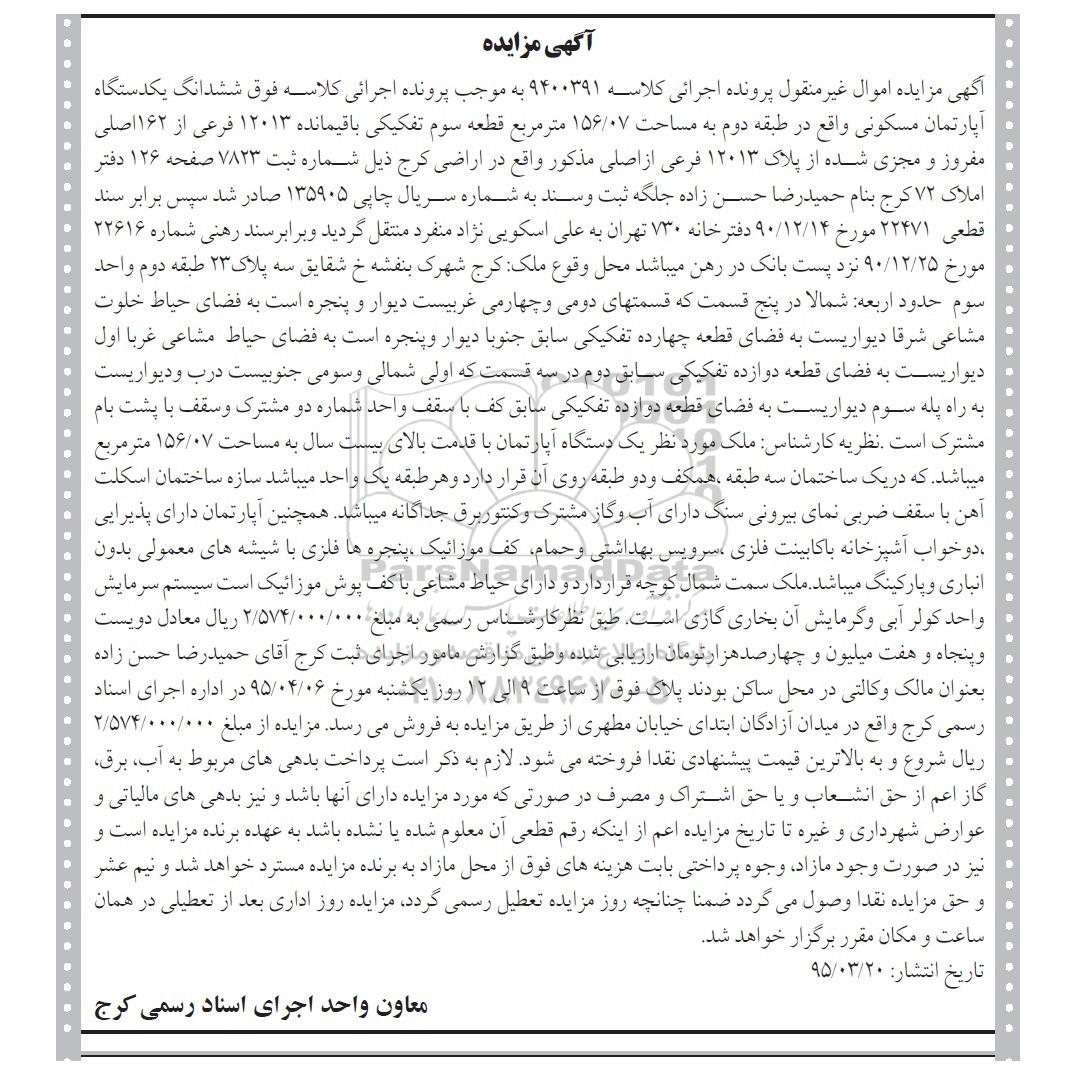 آگهی مزایده
آگهی مزایده اموال غیرمنقول پرونده اجرائی کلاسه ۹۴۰۰۳۹۱ به موجب پرونده اجرائی کلاسه فوق ششدانگ یکدستگاه
آپارتمان مسکونی واقع در طبقه دوم به مساحت ۱۵۶/۰۷ مترمربع قطعه سوم تفکیکی باقیمانده ۱۲۰۱۳ فرعی از ۱۶۲اصلی
مفروز و مجزی شده از پلاک ۱۲۰۱۳ فرعی ازاصلی مذکور واقع در اراضی کرج ذیل شماره ثبت ۷۸۲۳ صفحه ۱۲۶ دفتر
املاک ۷۲ کرج بنام حمیدرضا حسن زاده جلگه ثبت وسند به شماره سریال چاپی ۱۳۵۹۰۵ صادر شد سپس برابر سند
قطعی ۲۲۴۷۱ مورخ ۹۰/۱۲/۱۴ دفترخانه ۷۳۰ تهران به علی اسکویی نژاد منفرد منتقل گردید وبرابرسند رهنی شماره ۲۲۶۱۶
مورخ ۹۰/۱۲/۲۵ نزد پست بانک در رهن میباشد محل وقوع ملک: کرج شهرک بنفشه خ شقایق سه پلاک۲۳ طبقه دوم واحد
سوم حدود اربعه: شمالا در پنج قسمت که قسمتهای دومی وچهارمی غربیست دیوار و پنجره است به فضای حیاط خلوت
مشاعی شرقا دیواریست به فضای قطعه چهارده تفکیکی سابق جنوبا دیوار وپنجره است به فضای حیاط مشاعی غربا اول
دیواریست به فضای قطعه دوازده تفکیکی سابق دوم در سه قسمت که اولی شمالی وسومی جنوبیست درب ودیواریست
به راه پله سوم دیواریست به فضای قطعه دوازده تفکیکی سابق کف با سقف واحد شماره دو مشترک وسقف با پشت بام
مشترک است .نظریه کارشناس: ملک مورد نظر یک دستگاه آپارتمان با قدمت بالای بیست سال به مساحت ۱۵۶/۰۷ مترمربع
میباشد. که دریک ساختمان سه طبقه ،همکف ودو طبقه روی آن قرار دارد وهرطبقه یک واحد میباشد سازه ساختمان اسکلت
آهن با سقف ضربی نمای بیرونی سنگ دارای آب وگاز مشترک وکنتوربرق جداگانه میباشد. همچنین آپارتمان دارای پذیرایی
،دوخواب آشپزخانه باکابینت فلزی ،سرویس بهداشتی وحمام، کف موزائیک ،پنجره ها فلزی با شیشه های معمولی بدون
انباری وپارکینگ میباشد.ملک سمت شمال کوچه قرار دارد و دارای حیاط مشاعی باکف پوش موزائیک است سیستم سرمایش
واحد کولر آبی وگرمایش آن بخاری گازی است. طبق نظرکارشناس رسمی به مبلغ ۲/۵۷۴/۰۰۰/۰۰۰ ریال معادل دویست
وپنجاه و هفت میلیون و چهارصدهزارتومان ارزیابی شده وطبق گزارش مامور اجرای ثبت کرج آقای حمیدرضا حسن زاده
بعنوان مالک وکالتی در محل ساکن بودند پلاک فوق از ساعت ۹ الی ۱۲ روز یکشنبه مورخ ۹۵/۰۴/۰۶ در اداره اجرای اسناد
رسمی کرج واقع در میدان آزادگان ابتدای خیابان مطهری از طریق مزایده به فروش می رسد. مزایده از مبلغ ۲/۵۷۴/۰۰۰/۰۰۰
ریال شروع و به بالاترین قیمت پیشنهادی نقدا فروخته می شود. لازم به ذکر است پرداخت بدهی های مربوط به آب، برق،
گاز اعم از حق انشعاب و یا حق اشتراک و مصرف در صورتی که مورد مزایده دارای آنها باشد و نیز بدهی های مالیاتی و
عوارض شهرداری و غیره تا تاریخ مزایده اعم از اینکه رقم قطعی آن معلوم شده یا نشده باشد به عهده برنده مزایده است و
نیز در صورت وجود مازاد، وجوه پرداختی بابت هزینه های فوق از محل مازاد به برنده مزایده مسترد خواهد شد و نیم عشر
و حق مزایده نقدا وصول می گردد ضمنا چنانچه روز مزایده تعطیل رسمی گردد، مزایده روز اداری بعد از تعطیلی در همان
ساعت و مکان مقرر برگزار خواهد شد.
تاریخ انتشار: ۹۵/۰۳/۲۰
معاون واحد اجرای اسناد رسمی کرج
ParsNamadData